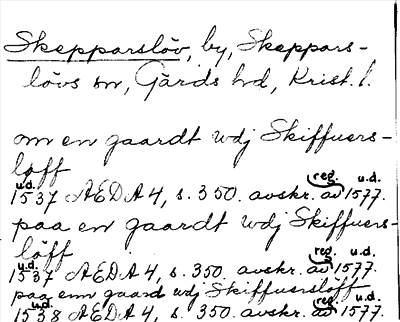 Skepparslöv, by, Skeppars-
lövs sn, Gärds hd, Krist. l.
om en gaardt wdj Skiffuers-
löff
u.d. reg. u.d.
1537 AEDA 4, s. 350. avskr. av 1577.
paa en gaardt wdj Skiffuers-
löff
u.d. reg. u.d.
1537 AEDA 4, s. 350. avskr. av 1577.
paa enn gaard wdj Skiffuerslöff
u.d. reg. u.d.
1538 AEDA 4, s. 350. avskr. av 1577.